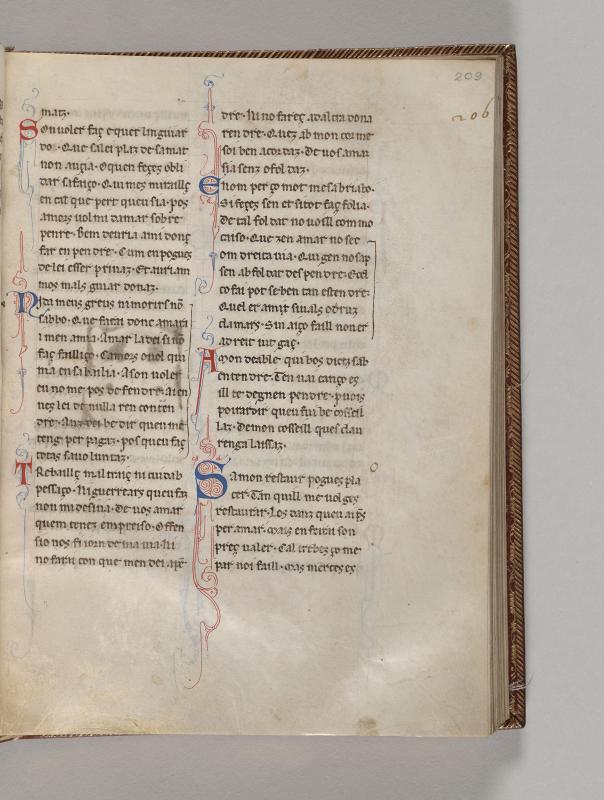 209
206
matz.
Son uoler faç e quer lin guiar
do. Que sal ei plaz de samar
non auçia. O quen feçes obli
dar sa faiço. Qui mes miraillz
en cal que part queu sia. pos
amors uol mi damar sobre
penre. Bem deuria ami donç
far en pen dre. Cum en pogues
de lei esser priuaz. Et auriam
mos mals guiar donaz.
Ni ia meus greus
sabbo. Que farai donc amara
i men amia. Amar la dei si uo
faç failliço. Camors ouol qui
ma en sa bailia. A son uoler
eu no me pos de fen dre. Ai en
ues lei de nulla ren conten
dre. Anz dei be dir queu me
teng per pagaz. pos queu faç
totas sas uo luntaz.
Trebaillz mal traiç ni cuidab
pessaço. Ni guerrears queu faz
non mi desuia. De uos amar
quem tenez empreiso. Offen
sio nos fi iorn de ma uia. Ni
no farai con que men dei
dre. Ni no fareç ad altra dona
ren dre. Quez ab mon cor me
soi ben acordaz. De uos amar
sia senz o fol daz.
E nom per ço mot mesabriabo.
Si feçes sen et sitot faç folia.
De tal fol dat no uoill com mo
criso. Que zen amar no sec
om dreita uia. Qui gen no sap
sen ab fol dat des pen dre. Ecel
co fai pot se ben tan esten dre.
Quel er amar siuals o druz
clamars. Si n aiço faill non er
ad reit iut gaç.
Amon deable qui bos dietz sab
enten dre. Ten uai canço es
ill te degnen pendre. puois
poirai dir queu fui be cosseil
laz. De mon cosseill ques clau
renga laissaz.
Samon restaur pogues pla
cer. Tan quill me uolges
restaurar. Los danz queu aips
per amar. Mais en feira son
preç ualer. Cal trebez ço me
par noi faill. Mas merces es